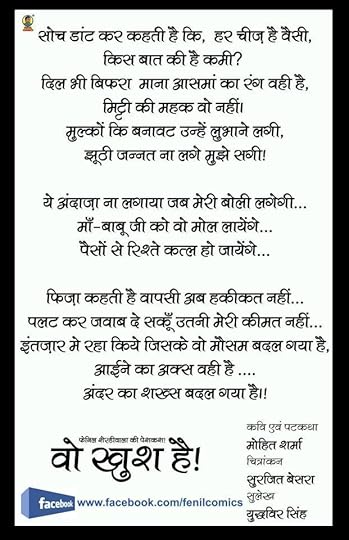 सोच डांट कर कहती है कि, हर चीज़ है वैसी,
किस बात की है कमी?
दिल भी बिफरा माना आसमां का रंग वही है,
मिट्टी की महक वो नहीं।
मुल्कों कि बनावट उन्हें लुभाने लगी,
झूठी जन्नत ना लगे मुझे सगी!
ये अंदाज़ा ना लगाया जब मेरी बोली लगेगी...
माँ-बाबू जी को वो मोल लायेंगे...
पैसों से रिश्ते कत्ल हो जायेंगे...
फिज़ा कहती है वापसी अब हकीकत नहीं...
पलट कर जवाब दे सकूँ उतनी मेरी कीमत नहीं...
इंतज़ार मे रहा किये जिसके वो मौसम बदल गया है,
आईने का अक्स वही है ....
अंदर का शख्स बदल गया है।!
कवि एवं पटकथा
मोहित शर्मा
चित्रांकन
सुरजित बेसरा
सुलेख
युद्धवीर सिंह
फेनिल शेरडीवाला की पेशकश!
वो खुश है!
facebook www.facebook.com/fenilcomics